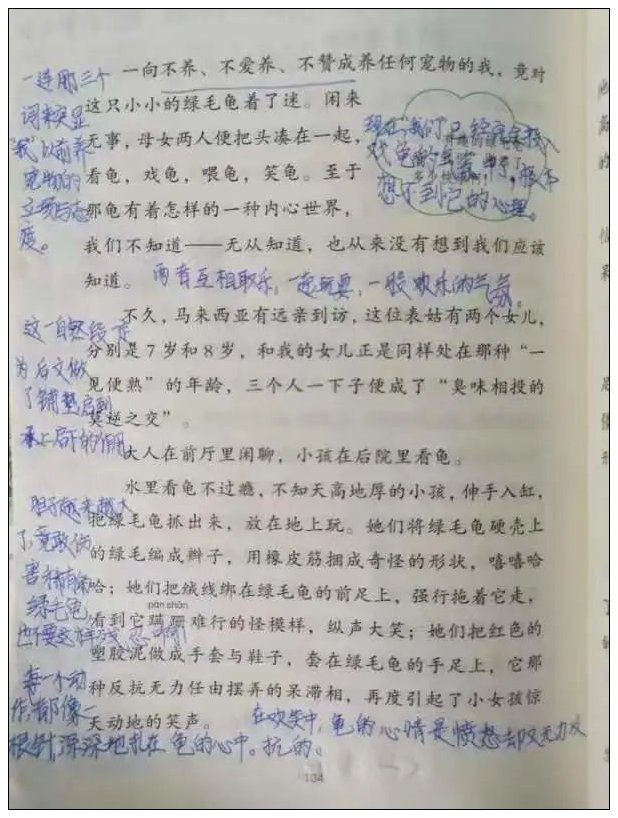 一向不养、不爱养、不赞成养任何宠物的我，竟对
这只小小的绿毛龟着了迷。闲来
无事，母女两人便把头凑在一起，
看龟，戏龟，喂龟，笑龟。至于
那龟有着怎样的一种内心世界，
我们不知道——无从知道，也从来没有想到我们应该
知道。
不久，马来西亚有远亲到访，这位表姑有两个女儿，
分别是7岁和8岁，和我的女儿正是同样处在那种“一
见便熟”的年龄，三个人一下子便成了“臭味相投的
莫逆之交”。
大人在前厅里闲聊，小孩在后院里看龟。
水里看龟不过瘾，不知天高地厚的小孩，伸手入缸，
把绿毛龟抓出来，放在地上玩。她们将绿毛龟硬壳上
的绿毛编成辫子，用橡皮筋捆成奇怪的形状，嘻嘻哈
哈；她们把绒线绑在绿毛龟的前足上，强行拖着它走，
pán shān
看到它蹒跚难行的怪模样，纵声大笑；她们把红色的
塑胶泥做成手套与鞋子，套在绿毛龟的手足上，它那
种反抗无力任由摆弄的呆滞相，再度引起了小女孩惊
天动地的笑声。
104
一连用三个
词来突显
“我”以前养
宠物的
立场与态
度。
现在“我们”已经完全投入
戏龟的
想不到它的心理。
两者互相取乐，一起玩耍，一股欢乐的气氛。
这一自然段
为后文做
了铺垫，启到
承上启下的作用
胆子越来越大
了，竟敢伤
害
绿毛龟
也不要这样
每一个动
作，都像一
根针，深深地扎在龟的心中。
在欢笑中，龟的心情是愤怒却又无力反
抗的。